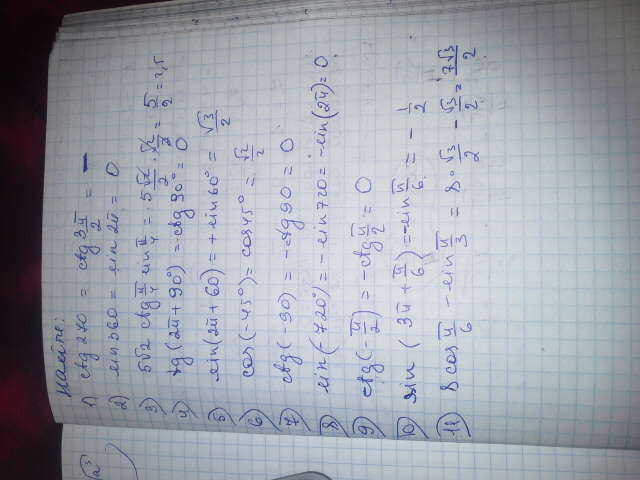 Найти:
1) ctg 270 = ctg 3π/2 = –
2) sin 360 = sin 2π = 0
3) 5√2 ctg π/4 sin π/4 = 5√2/2 · √2/2 = 5/2 = 2,5
4) ctg (2π + 90°) = ctg 90° = 0
5) sin(2π + 60) = + sin 60° = √3/2
6) cos (-45°) = cos 45° = √2/2
7) ctg (-90) = -ctg 90 = 0
8) sin (-720°) = - sin 720 = - sin (2π) = 0
9) ctg (-π/2) = -ctg π/2 = 0
10) sin (3π + π/6) = -sin π/6 = - 1/2
11) 8 cos π/6 - sin π/3 = 8 · √3/2 - √3/2 = 7√3/2